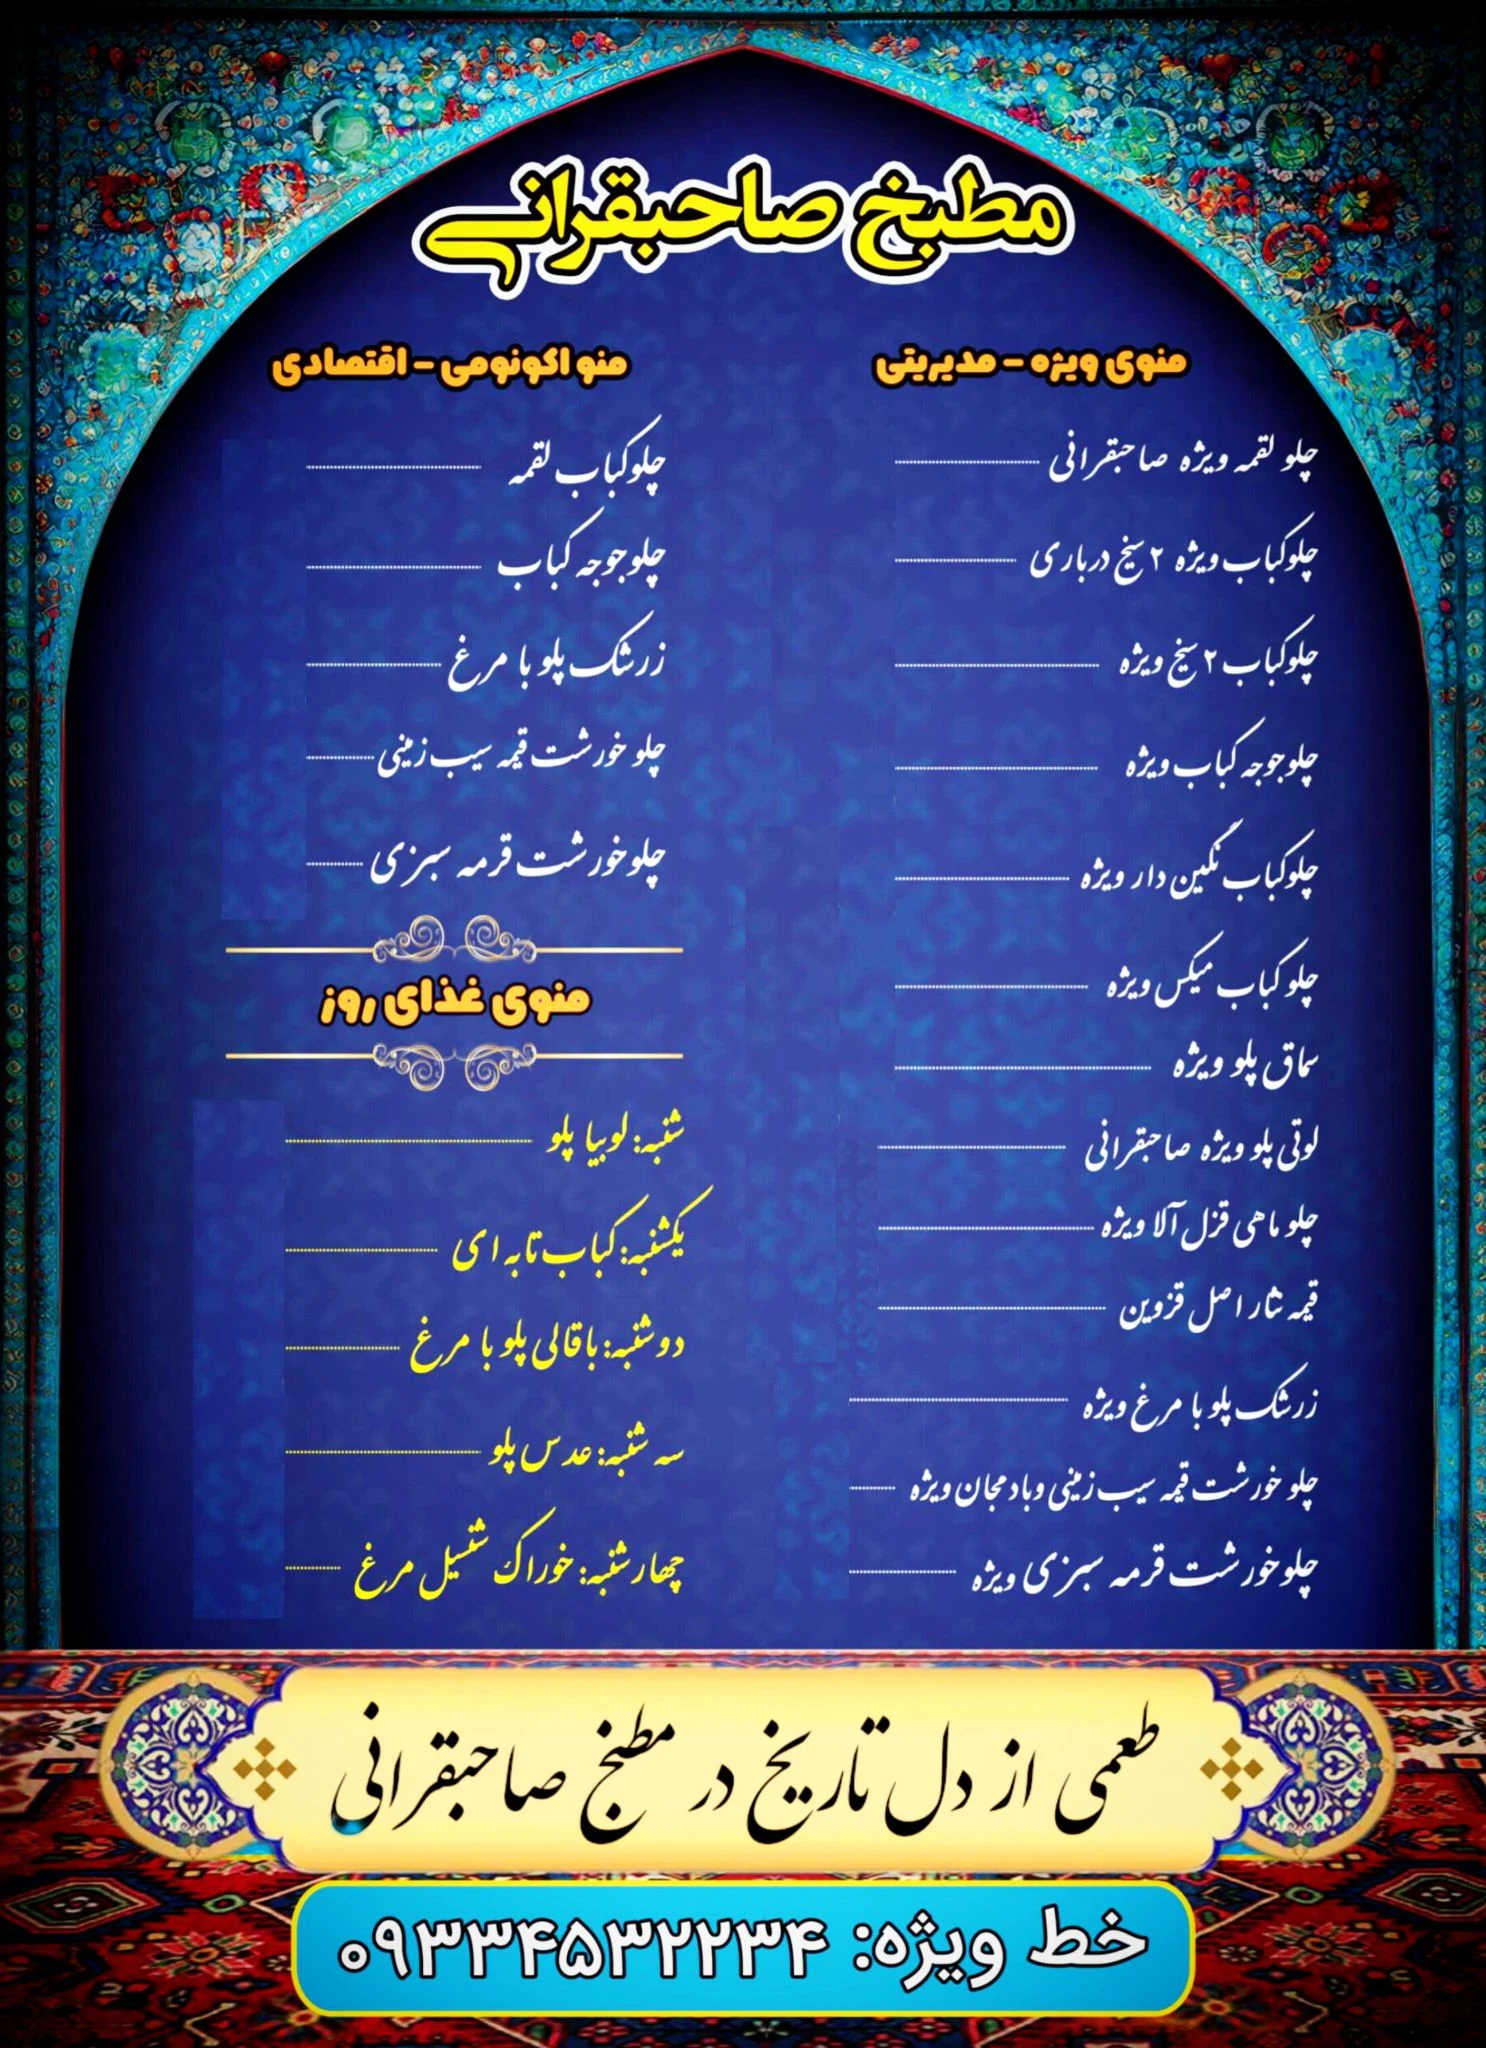 مطبخ صاحبقرانی
منوی ویژه - مدیریتی
چلو لقمه ویژه صاحبقرانی
چلوکباب ویژه ۲ سیخ درباری
چلوکباب ۲ سیخ ویژه
چلوجوجه کباب ویژه
چلوکباب نگین دار ویژه
چلو کباب میکس ویژه
سماق پلو ویژه
لوتی پلو ویژه صاحبقرانی
چلو ماهی قزل آلا ویژه
قیمه نثار اصل قزوین
زرشک پلو با مرغ ویژه
چلو خورشت قیمه سیب زمینی وبادمجان ویژه
چلوخورشت قرمه سبزی ویژه
منو اکونومی - اقتصادی
چلوکباب لقمه
چلوجوجه کباب
زرشک پلو با مرغ
چلو خورشت قیمه سیب زمینی
چلوخورشت قرمه سبزی
منوی غذای روز
شنبه: لوبیا پلو
یکشنبه: کباب تابه ای
دوشنبه: باقالی پلو با مرغ
سه شنبه: عدس پلو
چهارشنبه: خوراک شنسیل مرغ
طعمی از دل تاریخ در مطبخ صاحبقرانی
خط ویژه: ۰۹۳۳۴۵۳۲۲۳۴